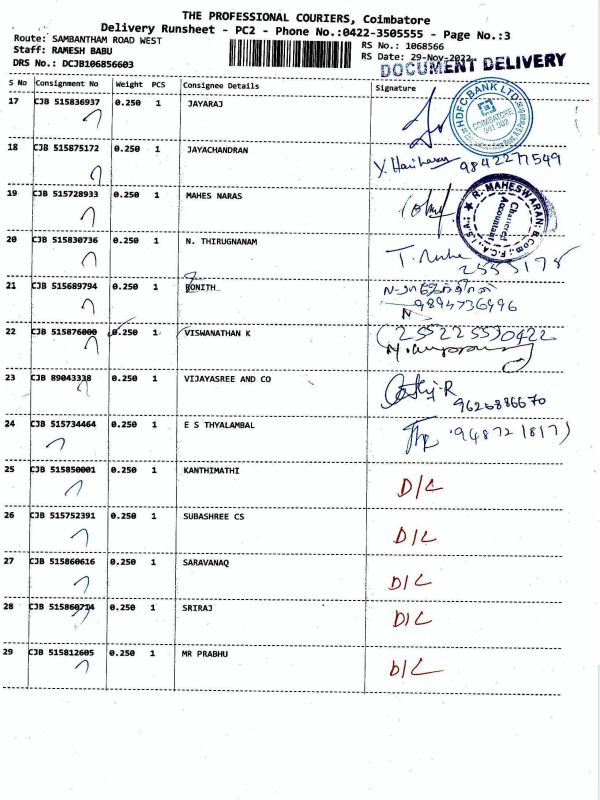 THE PROFESSIONAL COURIERS, Coimbatore
Delivery Runsheet - PC2 - Phone No.:0422-3505555 - Page No.:3
Route: SAMBANTHAM ROAD WEST
RS No.: 1068566
Staff: RAMESH BABU
RS Date: 29-Nov-2022
DRS No.: DCJB106856603
DOCUMENT DELIVERY
S No Consignment No Weight PCS Consignee Details Signature
17 CJB 515836937 0.250 1 JAYARAJ
HDFC BANK LTD.
COIMBATORE
641 002
18 CJB 515875172 0.250 1 JAYACHANDRAN
Y. Hariharan 9842277549
19 CJB 515728933 0.250 1 MAHES NARAS
R. MAHESWARAN B.Com., F.C.A., I.S.A.
Chartered
Accountant
20 CJB 515830736 0.250 1 N. THIRUGNANAM
2555178
21 CJB 515689794 0.250 1 RONITH
9894736996
22 CJB 515876000 0.250 1 VISWANATHAN K
255225530422
23 CJB 89043338 0.250 1 VIJAYASREE AND CO
9626886670
24 CJB 515734464 0.250 1 E S THYALAMBAL
25 CJB 515850001 0.250 1 KANTHIMATHI D/L
26 CJB 515752391 0.250 1 SUBASHREE CS D/L
27 CJB 515860616 0.250 1 SARAVANAQ D/L
28 CJB 515860714 0.250 1 SRIRAJ D/L
29 CJB 515812605 0.250 1 MR PRABHU D/L